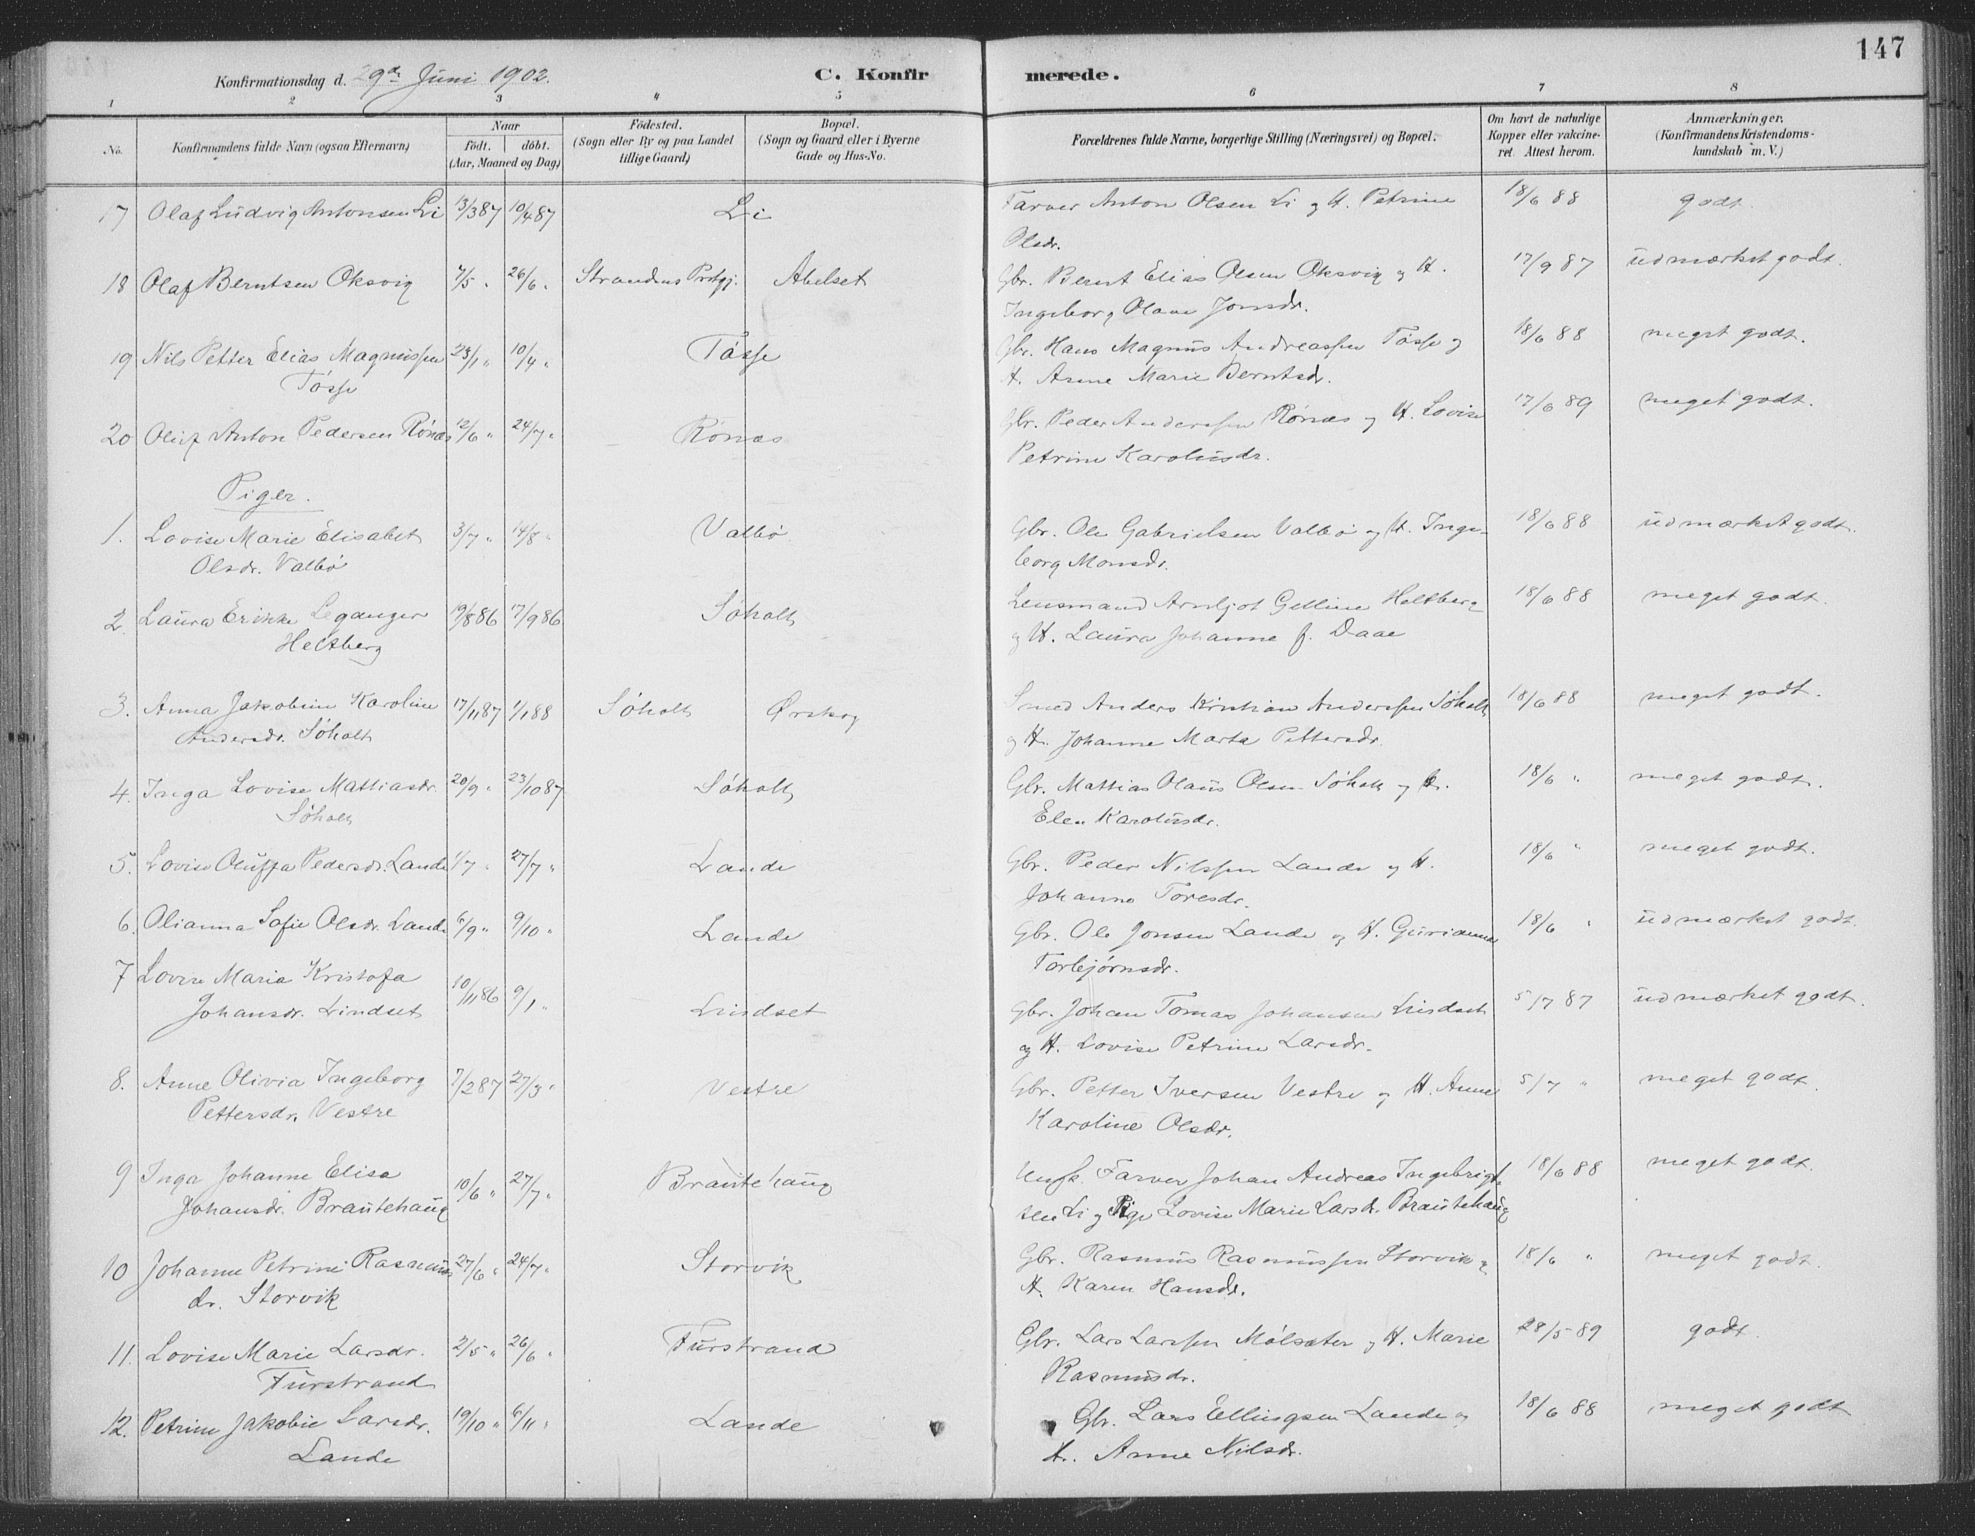 147
Konfirmationsdag d. 29de Juni 1902. C. Konfirmerede.
1 2 3 4 5 6 7 8
No. Konfirmandens fulde Navn (ogsaa Efternavn) Naar født. døbt. (Aar, Maaned og Dag) Fødested. (Sogn eller By og paa Landet tillige Gaard) Bopæl. (Sogn og Gaard eller i Byerne Gade og Hus-No. Forældrenes fulde Navne, borgerlige Stilling (Næringsvei) og Bopæl. Om havt de naturlige Kopper eller vakcineret. Attest herom. Anmærkninger. (Konfirmandens Kristendomskundskab m. V.)
17 Olaf Ludvig Antonsen Li 13/3 87 10/4 87 Li Farver Anton Olsen Li og H. Petrine 18/6 88 godt.
Olsdr.
18 Olaf Berntsen Oksvig 7/5 " 26/6 " Strandens Prstgj. Abelset Gbr. Bernt Elias Olsen Oksvig og H. 17/9 87 udmærket godt.
Ingeborg Olave Jonsdr.
19 Nils Petter Elias Magnussen 23/1 " 10/4 " Tøsse Gbr. Hans Magnus Andreassen Tøsse og 18/6 88 meget godt.
Tøsse H. Anne Marie Berntsdr.
20 Oluf Anton Pedersen Rønæs 12/6 " 24/7 " Rønæs Gbr. Peder Anderssen Rønæs og H. Lovise 17/6 89 meget godt.
Petrine Karolusdr.
Piger.
1. Lovise Marie Elisabet 3/7 " 14/8 " Valbø Gbr. Ole Gabrielsen Valbø og H. Inge- 18/6 88 udmærket godt.
Olsdr. Valbø borg Monsdr.
2. Laura Erikke Leganger 19/8 86 17/9 86 Søholt Lensmand Arnljot Gelline Heltberg 18/6 88 meget godt.
Heltberg og H. Laura Johanne f. Daae
3. Anna Jakobine Karoline 17/11 87 1/1 88 Søholt Ørskog Smed Anders Kristian Anderssen Søholt 18/6 88 meget godt.
Andersdr. Søholt og H. Johanne Marta Pettersdr.
4. Inga Lovise Mattiasdr. 20/9 " 23/10 87 Søholt Gbr. Mattias Olaus Olsen Søholt og H. 18/6 " meget godt.
Søholt Elen Karolusdr.
5. Lovise Oluffa Pedersdr. Lande 1/7 " 27/7 " Lande Gbr. Peder Nilssen Lande og H. 18/6 " meget godt.
Johanne Toresdr.
6. Olianna Sofie Olsdr. Lande 6/9 " 9/10 " Lande Gbr. Ole Jonsen Lande og H. Gurianna 18/6 " udmærket godt.
Torbjørnsdr.
7 Lovise Maria Kristofa 10/11 86 9/1 " Lindset Gbr. Johan Tomas Johansen Lindset 5/7 87 udmærket godt.
Johansdr. Lindset og H. Lovise Petrine Larsdr.
8. Anne Olivia Ingeborg 7/2 87 27/3 " Vestre Gbr. Petter Iversen Vestre og H. Anne 5/7 " meget godt.
Pettersdr. Vestre Karoline Olsdr.
9 Inga Johanne Elisa 10/6 " 27/7 " Brautehaug Ungk. Farver Johan Andreas Ingebrigt- 18/6 88 meget godt.
Johansdr. Brautehaug sen Li og Pige Lovise Marie Larsdr. Brautehaug
10 Johanne Petrine Rasmus 27/6 " 24/7 " Storvik Gbr. Rasmus Rasmussen Storvik og 18/6 " meget godt.
dr. Storvik H. Karen Hansdr.
11. Lovise Marie Larsdr. 2/5 " 26/6 " Furstrand Gbr. Lars Larssen Mølsæter og H. Marie 28/5 89 godt.
Furstrand Rasmusdr.
12. Petrine Jakobie Larsdr. 19/10 " 6/11 " Lande Gbr. Lars Ellingsen Lande og 18/6 88 meget godt
Lande H. Anne Nilsdr.